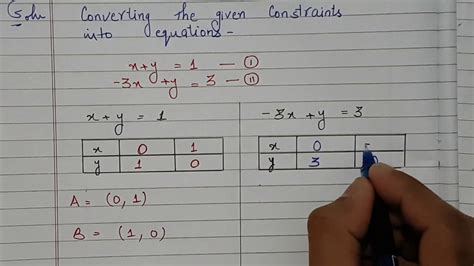 Soln Converting the given constraints
into equations -
x+y = 1 — (I)
-3x+y = 3 — (II)
x+y = 1
x 0 1
y 1 0
A = (0, 1)
B = (1, 0)
-3x+y = 3
x 0
y 3 0